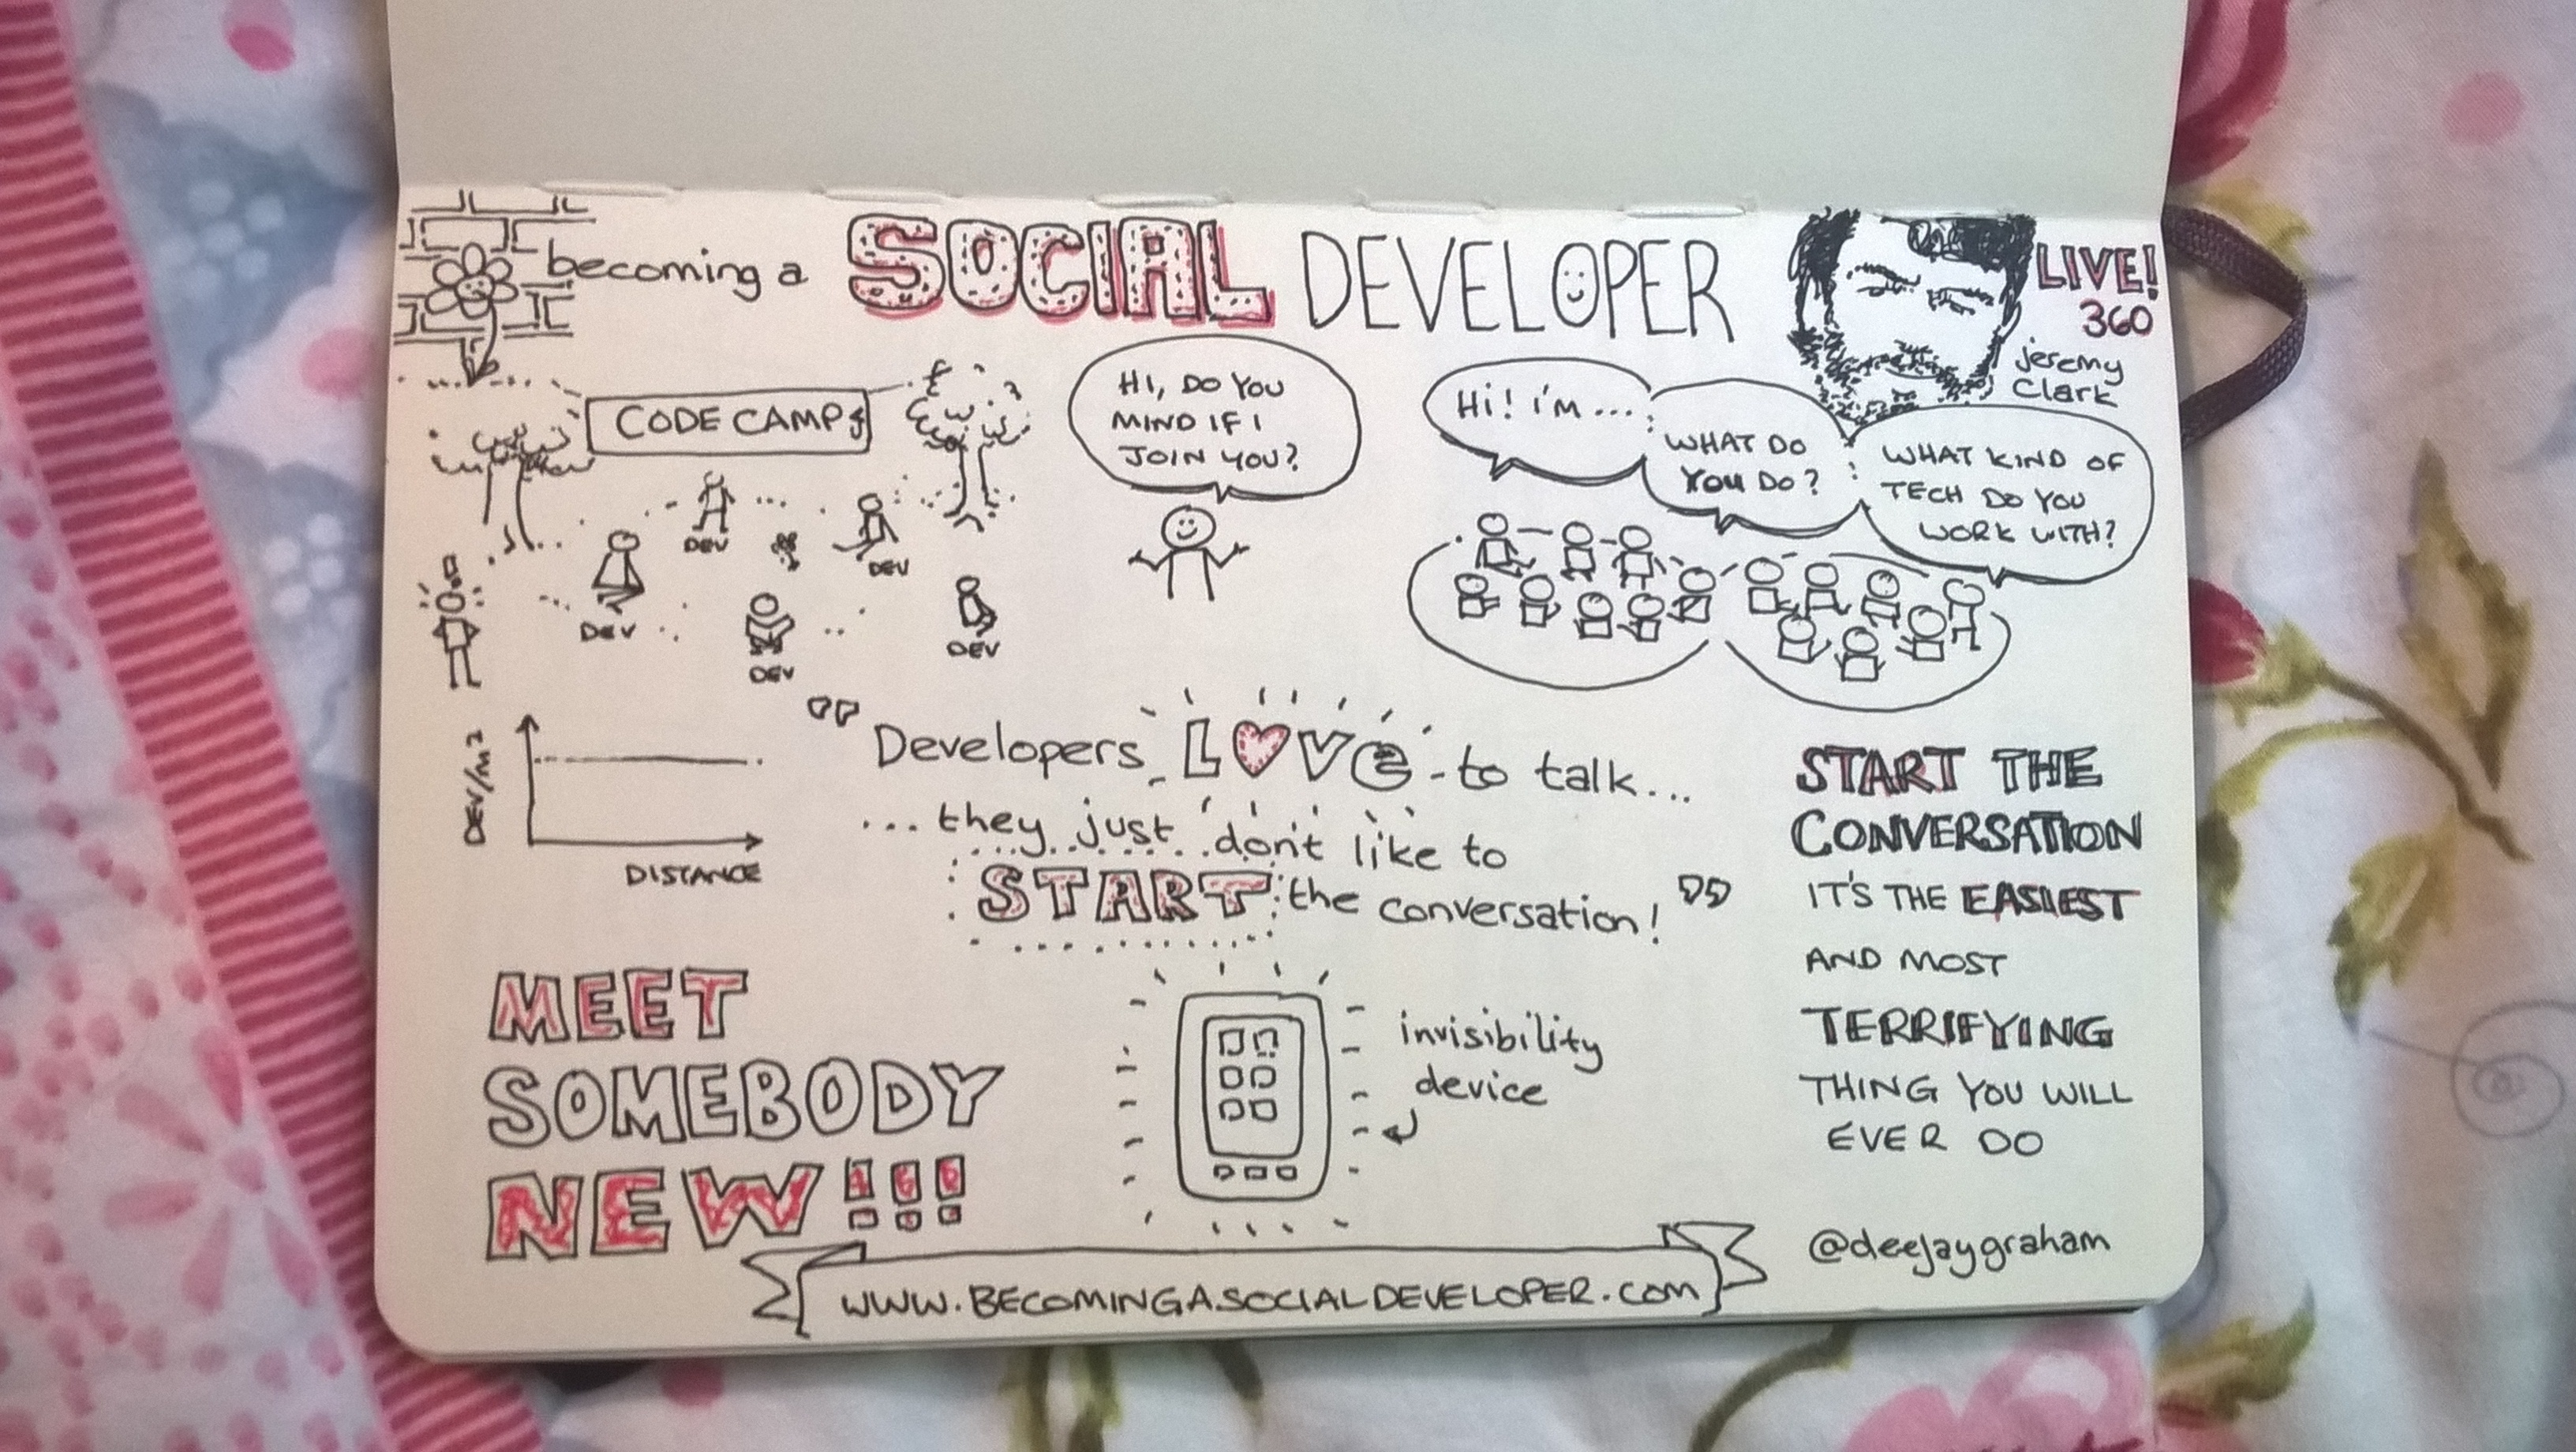 becoming a SOCIAL DEVELOPER
LIVE!
360
jeremy
Clark
CODE CAMP
HI, DO YOU
MIND IF I
JOIN YOU?
Hi! I'm ...
WHAT DO
YOU DO?
WHAT KIND OF
TECH DO YOU
WORK WITH?
DEV
DEV
DEV
DEV
DEV
DEV/m²
DISTANCE
" Developers LOVE to talk...
... they just don't like to
START the conversation! "
START THE
CONVERSATION
IT'S THE EASIEST
AND MOST
TERRIFYING
THING YOU WILL
EVER DO
MEET
SOMEBODY
NEW!!!
invisibility
device
@deejaygraham
WWW.BECOMINGASOCIALDEVELOPER.COM